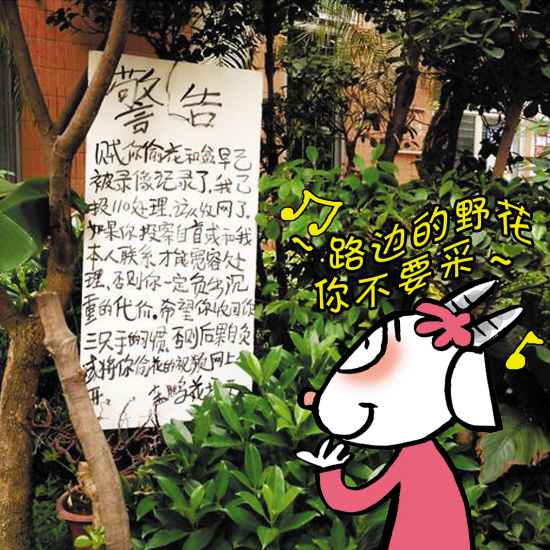 警告
贼你偷花和盆早已
被录像记录了,我已
报110处理,该收网了,
如果你投案自首或和我
本人联系才能宽容处
理,否则你一定负出沉
重的代价,希望你收回你
三只手的习惯,否则后果自负
或将你偷花的视频网上
路边的野花
你不要采~